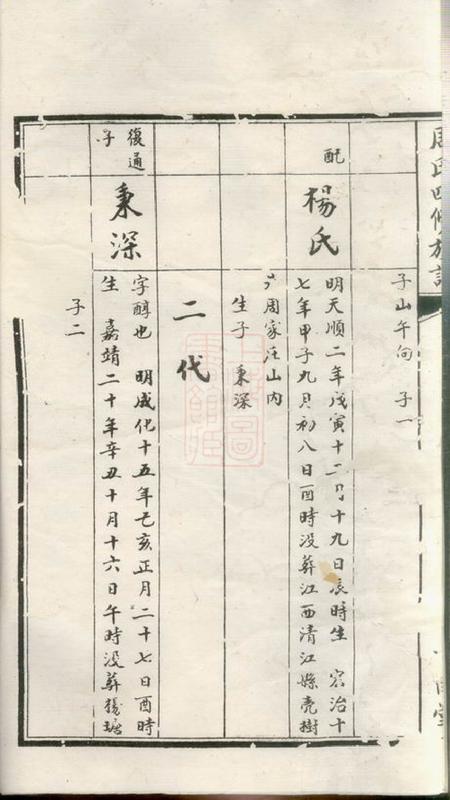 周氏四修族譜
子山午向 子一
配
楊氏
明天順二年戊寅十二月十九日辰時生 宏治十
七年甲子九月初八日酉時没葬江西清江縣亮樹
周家汪山内
生子 秉深
二代
復通
子
秉深
字醇也 明成化十五年乙亥正月二十七日酉時
生 嘉靖二十年辛丑十月十六日午時没葬
子二